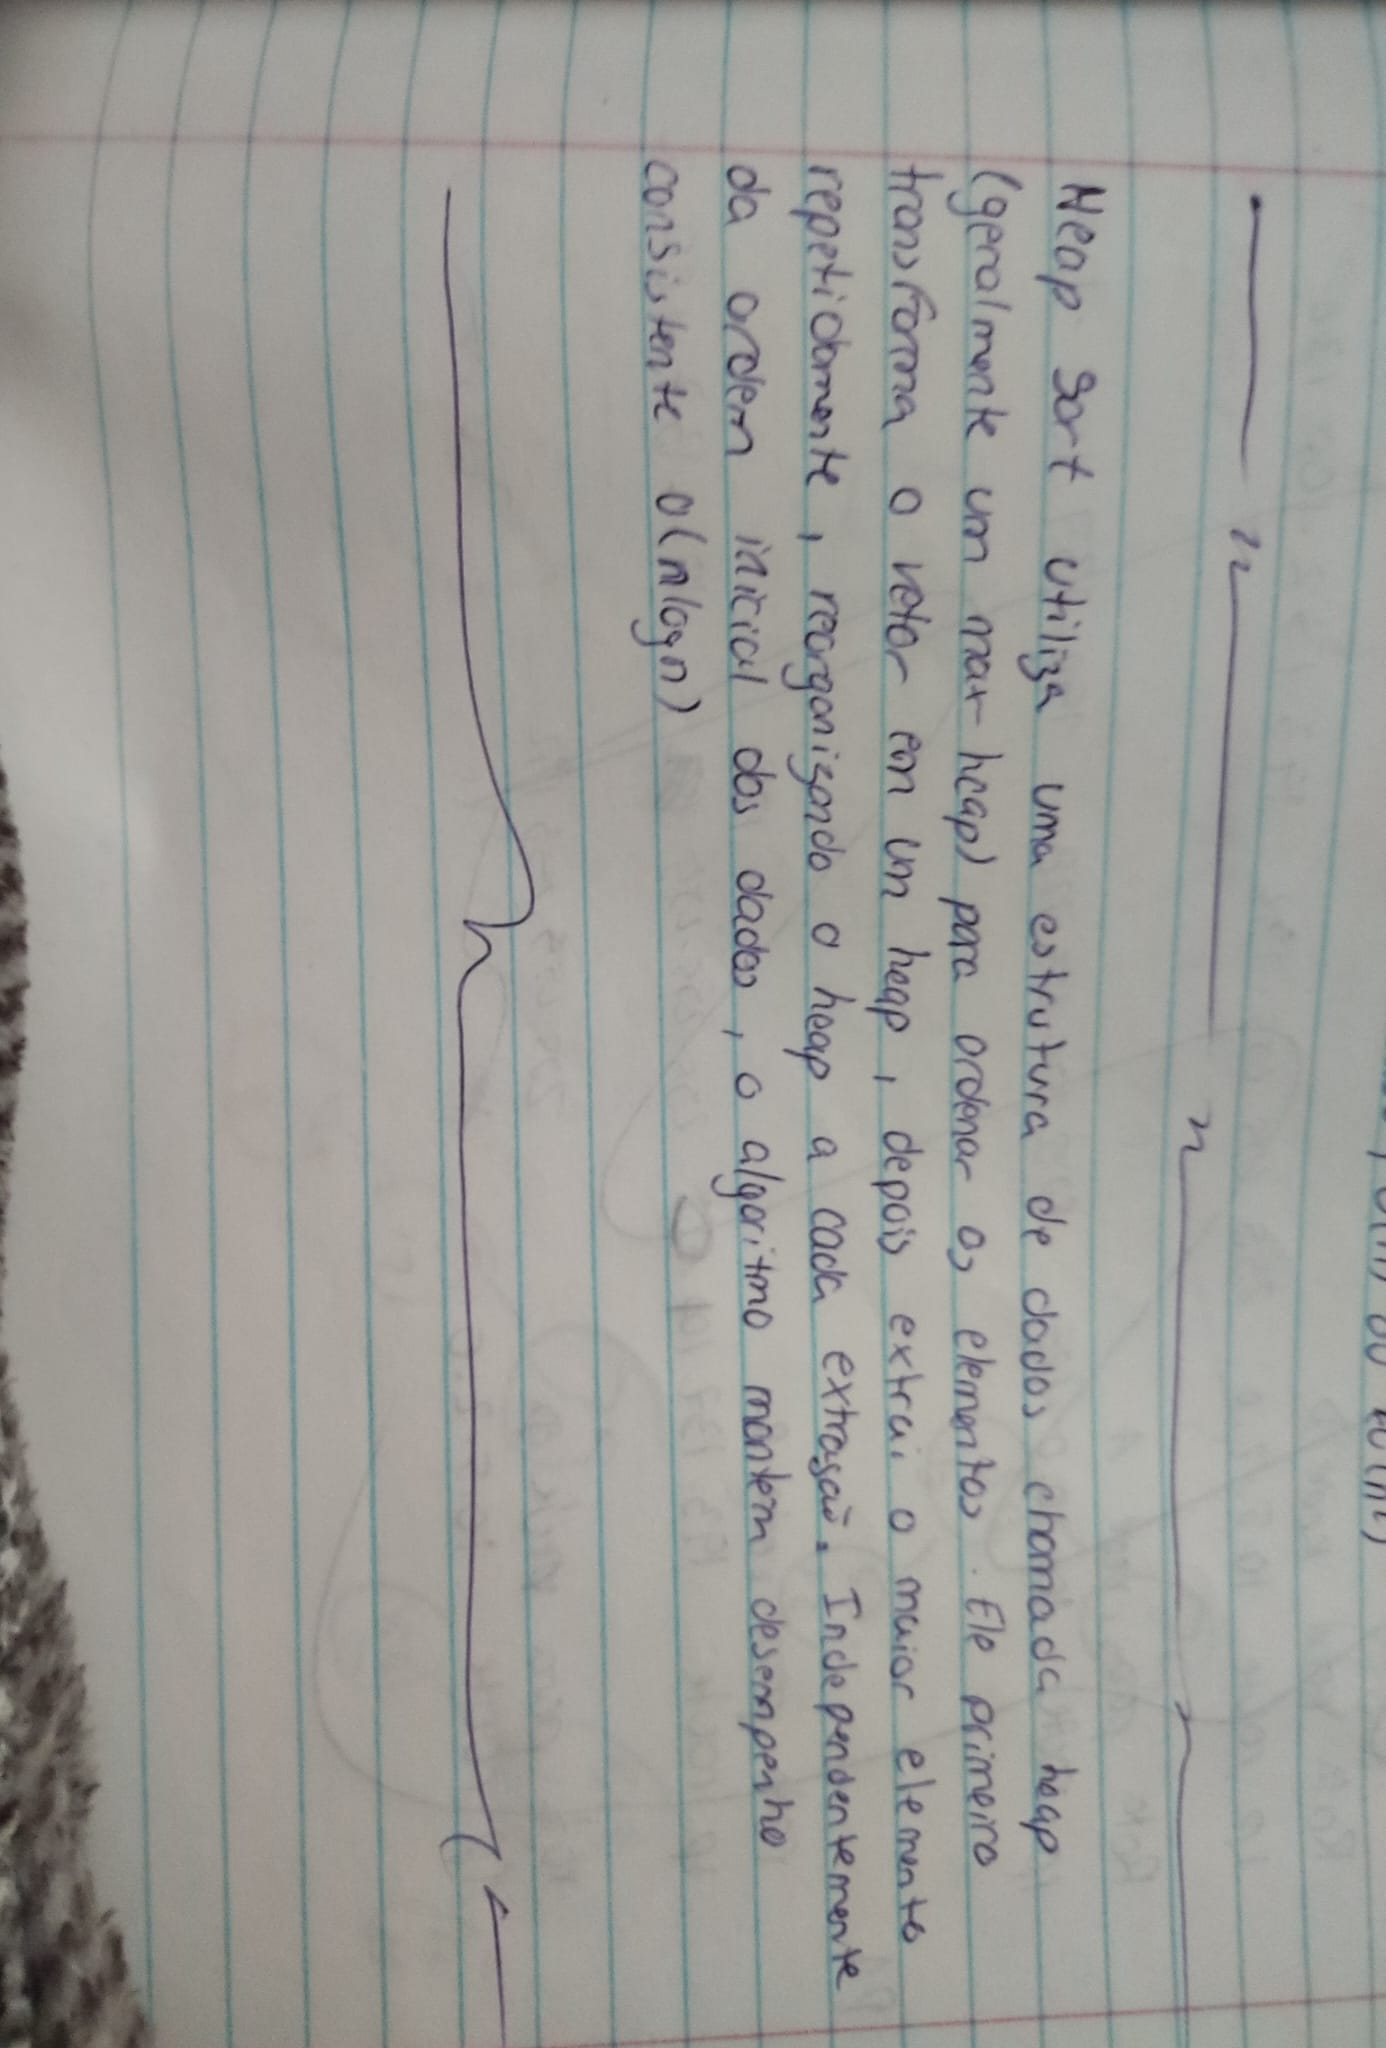 Heap Sort utiliza uma estrutura de dados chamada heap
(geralmente um max-heap) para ordenar os elementos. Ele primeiro
transforma o vetor em um heap, depois extrai o maior elemento
repetidamente, reorganizando o heap a cada extração. Independentemente
da ordem inicial dos dados, o algoritmo mantem desempenho
consistente O(nlogn)